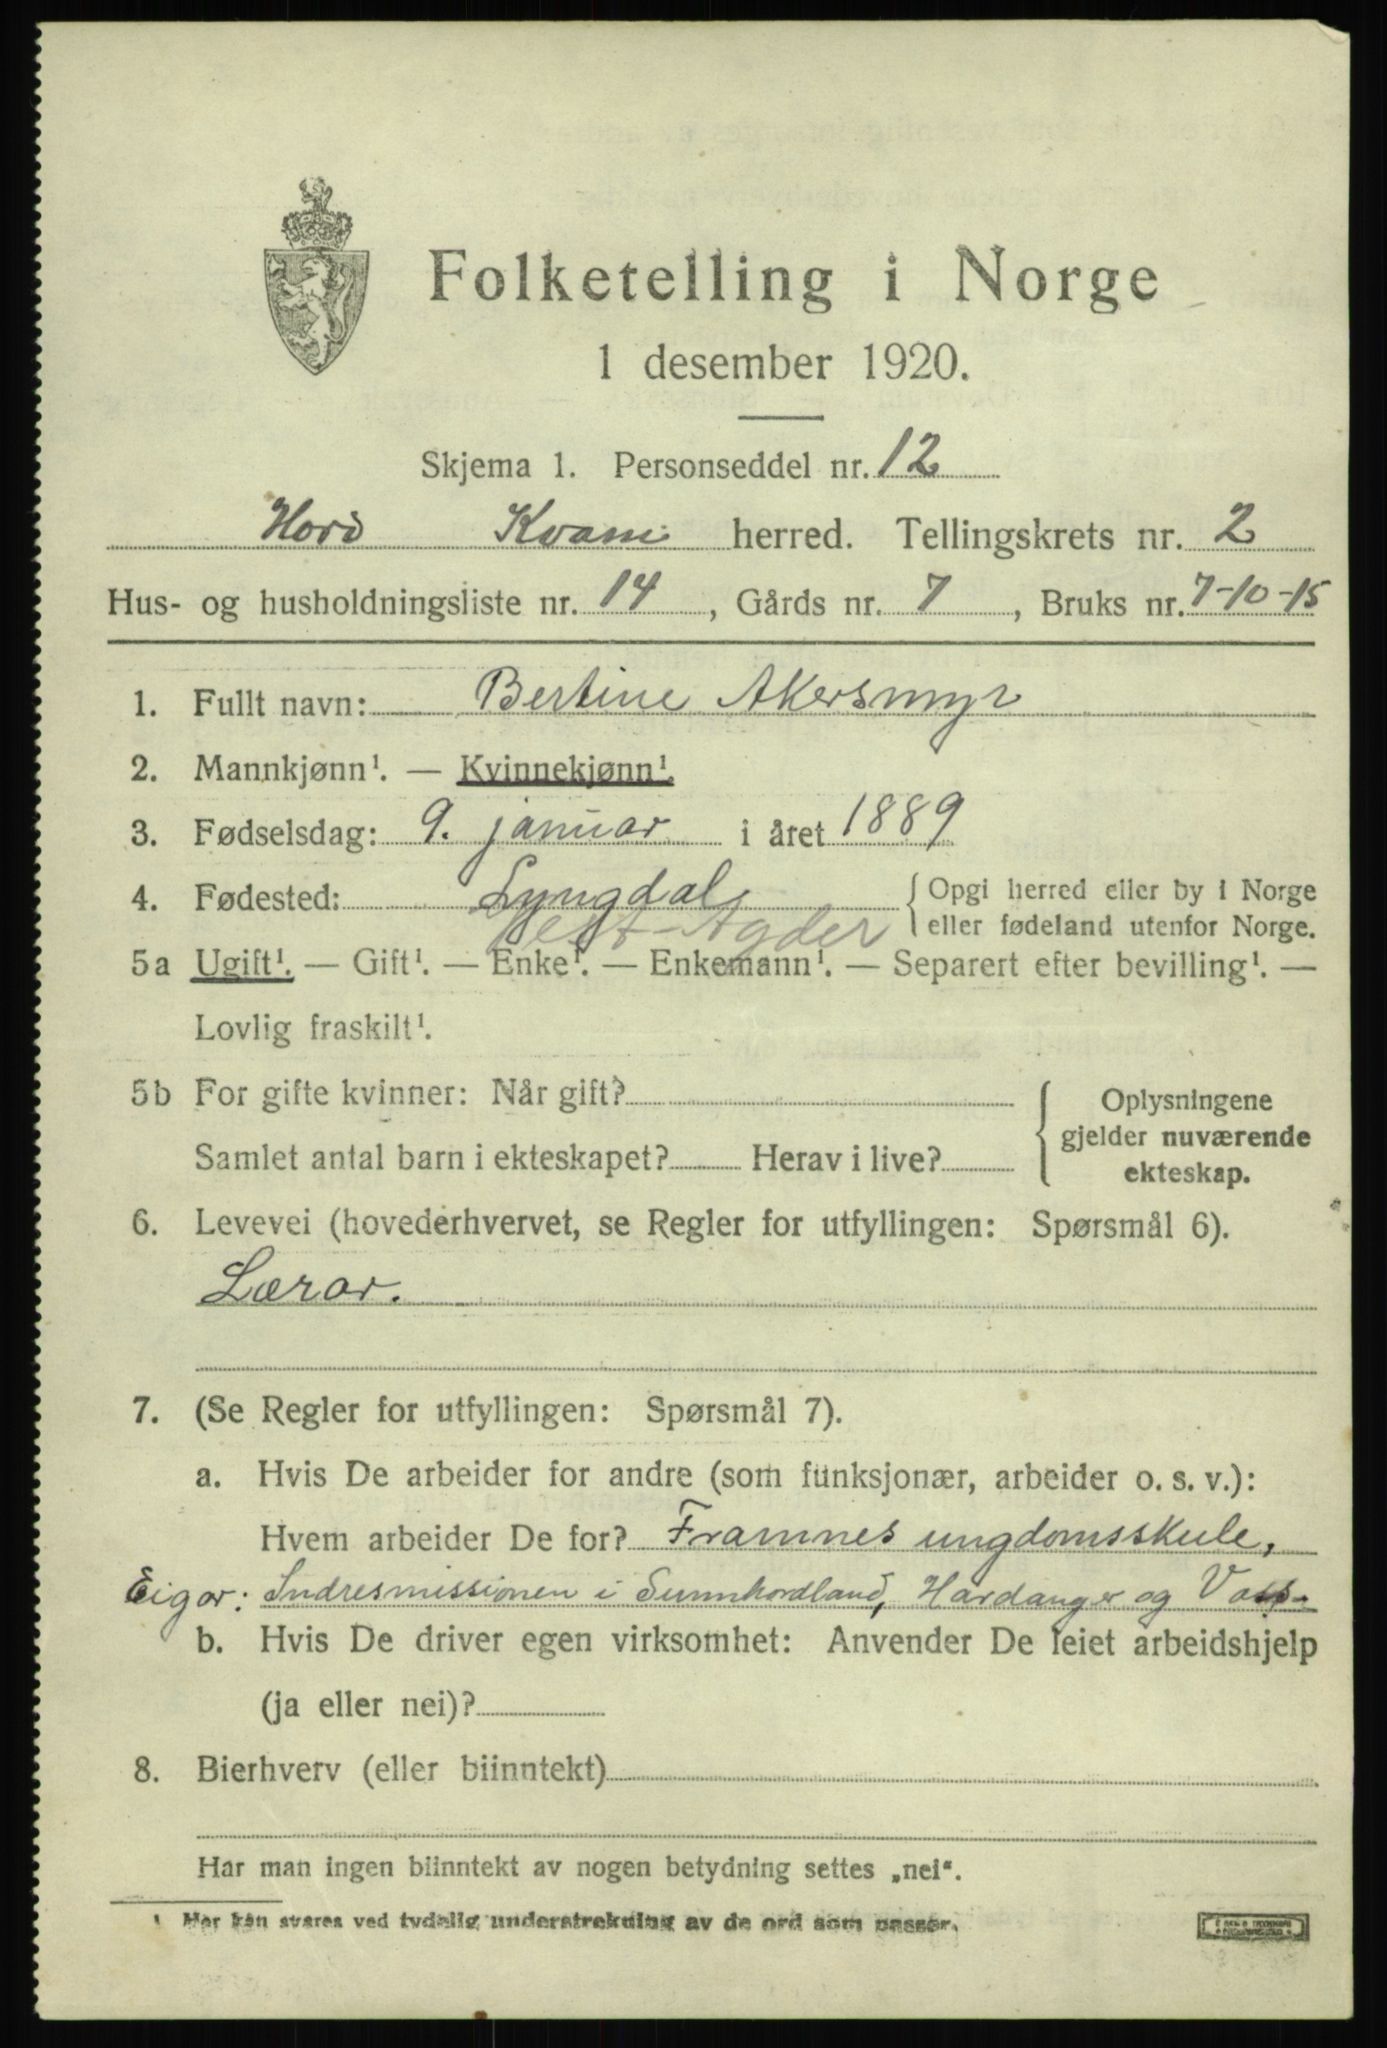 Folketelling i Norge
1 desember 1920.
Skjema 1. Personseddel nr. 12
Hord Kvam herred. Tellingskrets nr. 2
Hus- og husholdningsliste nr. 14, Gårds nr. 7, Bruks nr. 7-10-15
1. Fullt navn: Bertine Akersmyr
2. Mannkjønn¹. — Kvinnekjønn¹.
3. Fødselsdag: 9. januar i året 1889
4. Fødested: Lyngdal, { Opgi herred eller by i Norge
Vest-Agder eller fødeland utenfor Norge.
5a Ugift¹. — Gift¹. — Enke¹. — Enkemann¹. — Separert efter bevilling¹. —
Lovlig fraskilt¹.
5b For gifte kvinner: Når gift? { Oplysningene
gjelder nuværende
Samlet antal barn i ekteskapet? Herav i live? ekteskap.
6. Levevei (hovederhvervet, se Regler for utfyllingen: Spørsmål 6).
Lærar.
7. (Se Regler for utfyllingen: Spørsmål 7).
a. Hvis De arbeider for andre (som funksjonær, arbeider o. s. v.):
Hvem arbeider De for? Framnes ungdomsskule,
Eigar: Indresmissionen i Sunnhordland, Hardanger og Voss.
b. Hvis De driver egen virksomhet: Anvender De leiet arbeidshjelp
(ja eller nei)?
8. Bierhverv (eller biinntekt)
Har man ingen biinntekt av nogen betydning settes „nei“.
¹ Her kan svares ved tydelig understrekning av de ord som passer.